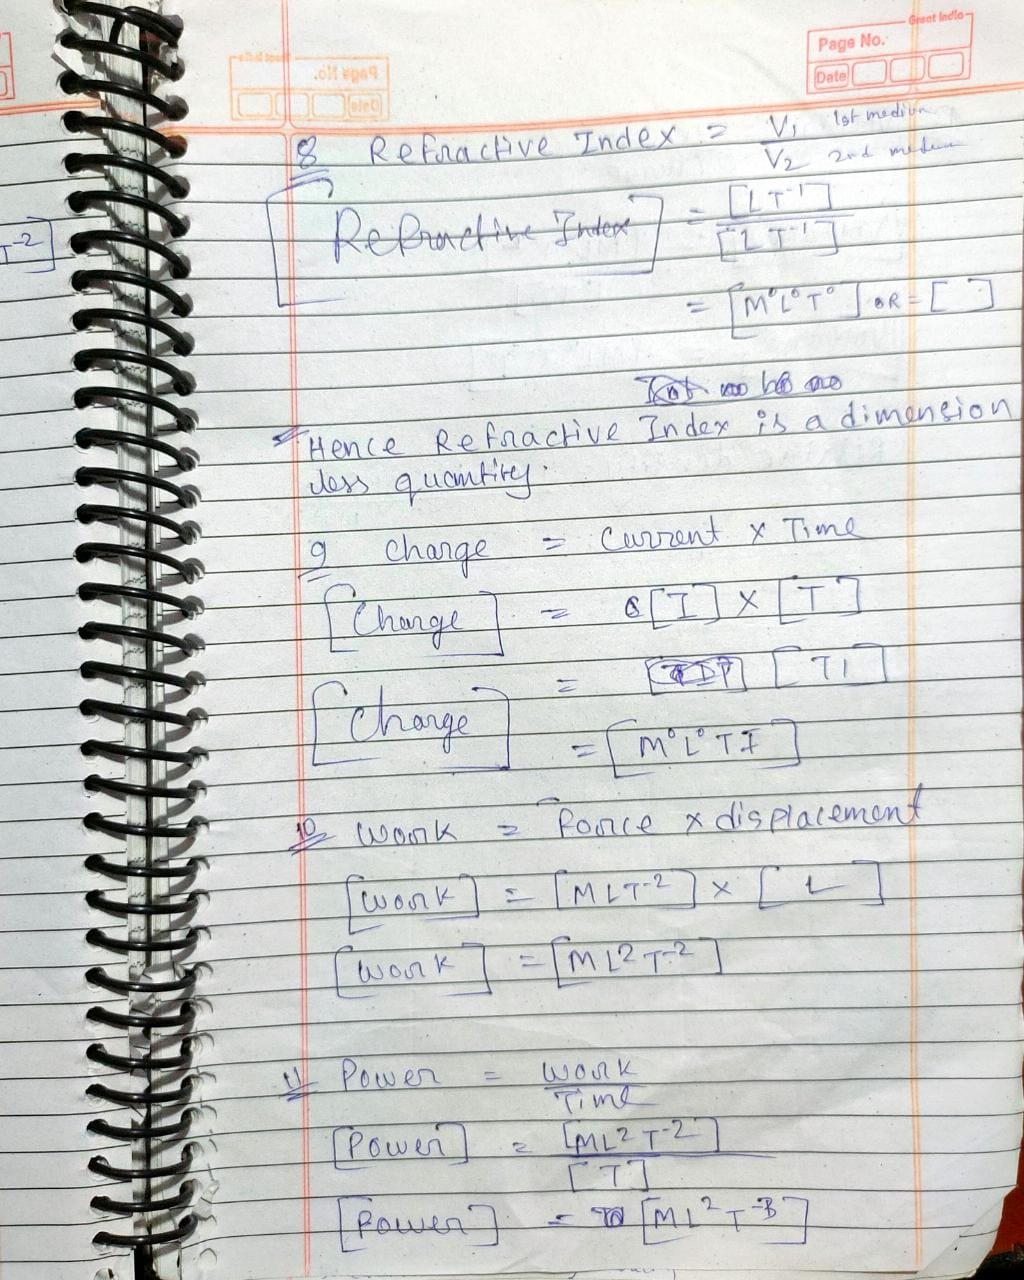 Great India
Page No.
Date
T⁻²]
8 Refractive Index = V₁ 1st medium
V₂ 2nd medium
[Refractive Index] = [LT⁻¹]
[LT⁻¹]
= [M⁰L⁰T⁰] OR = [ ]
Hence Refractive Index is a dimension
less quantity.
9 Charge = Current x Time
[Charge] = [I] x [T]
[Charge] = [TI]
= [M⁰L⁰TI]
10 Work = Force x displacement
[Work] = [MLT⁻²] x [L]
[Work] = [ML²T⁻²]
11 Power = Work
Time
[Power] = [ML²T⁻²]
[T]
[Power] = [ML²T⁻³]